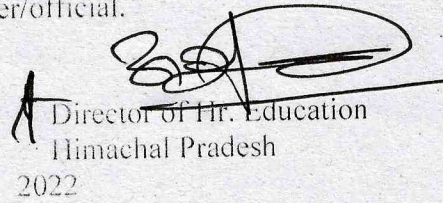 er/official.
Director of Hr. Education
Himachal Pradesh
2022